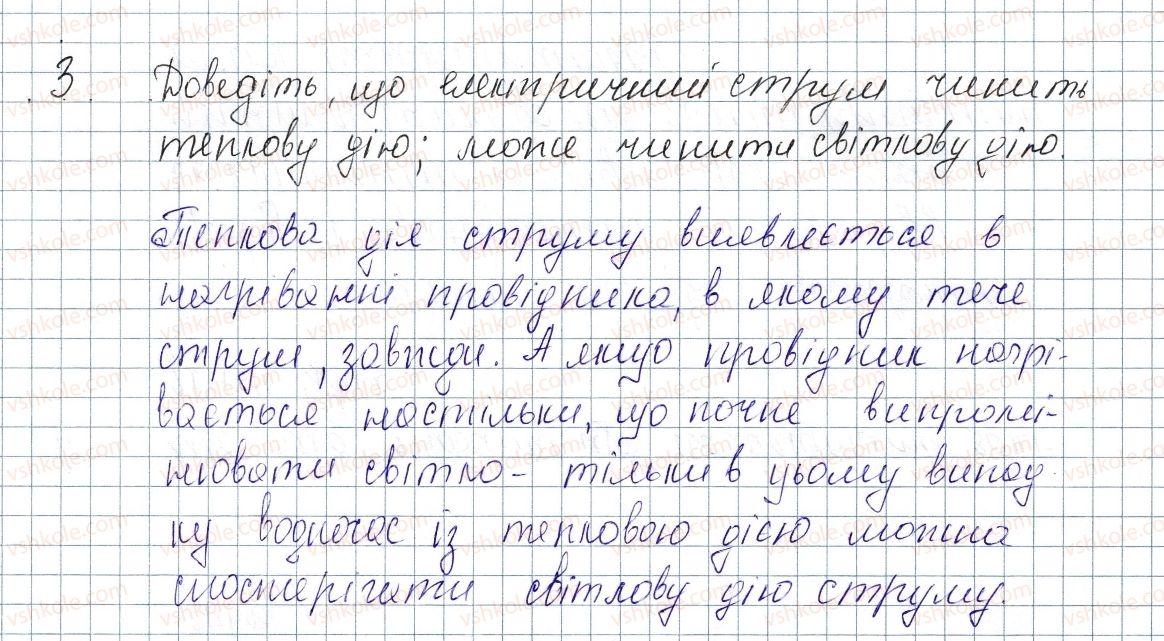 3. Доведіть, що електричний струм чинить
теплову дію; може чинити світлову дію.
Теплова дія струму виявлеється в
нагріванні провідника, в якому тече
струм, завжди. А якщо провідник нагрі-
вається настільки, що почне випромі-
нювати світло - тільки в цьому випад-
ку водночас із тепловою дією можна
спостерігати світлову дію струму.